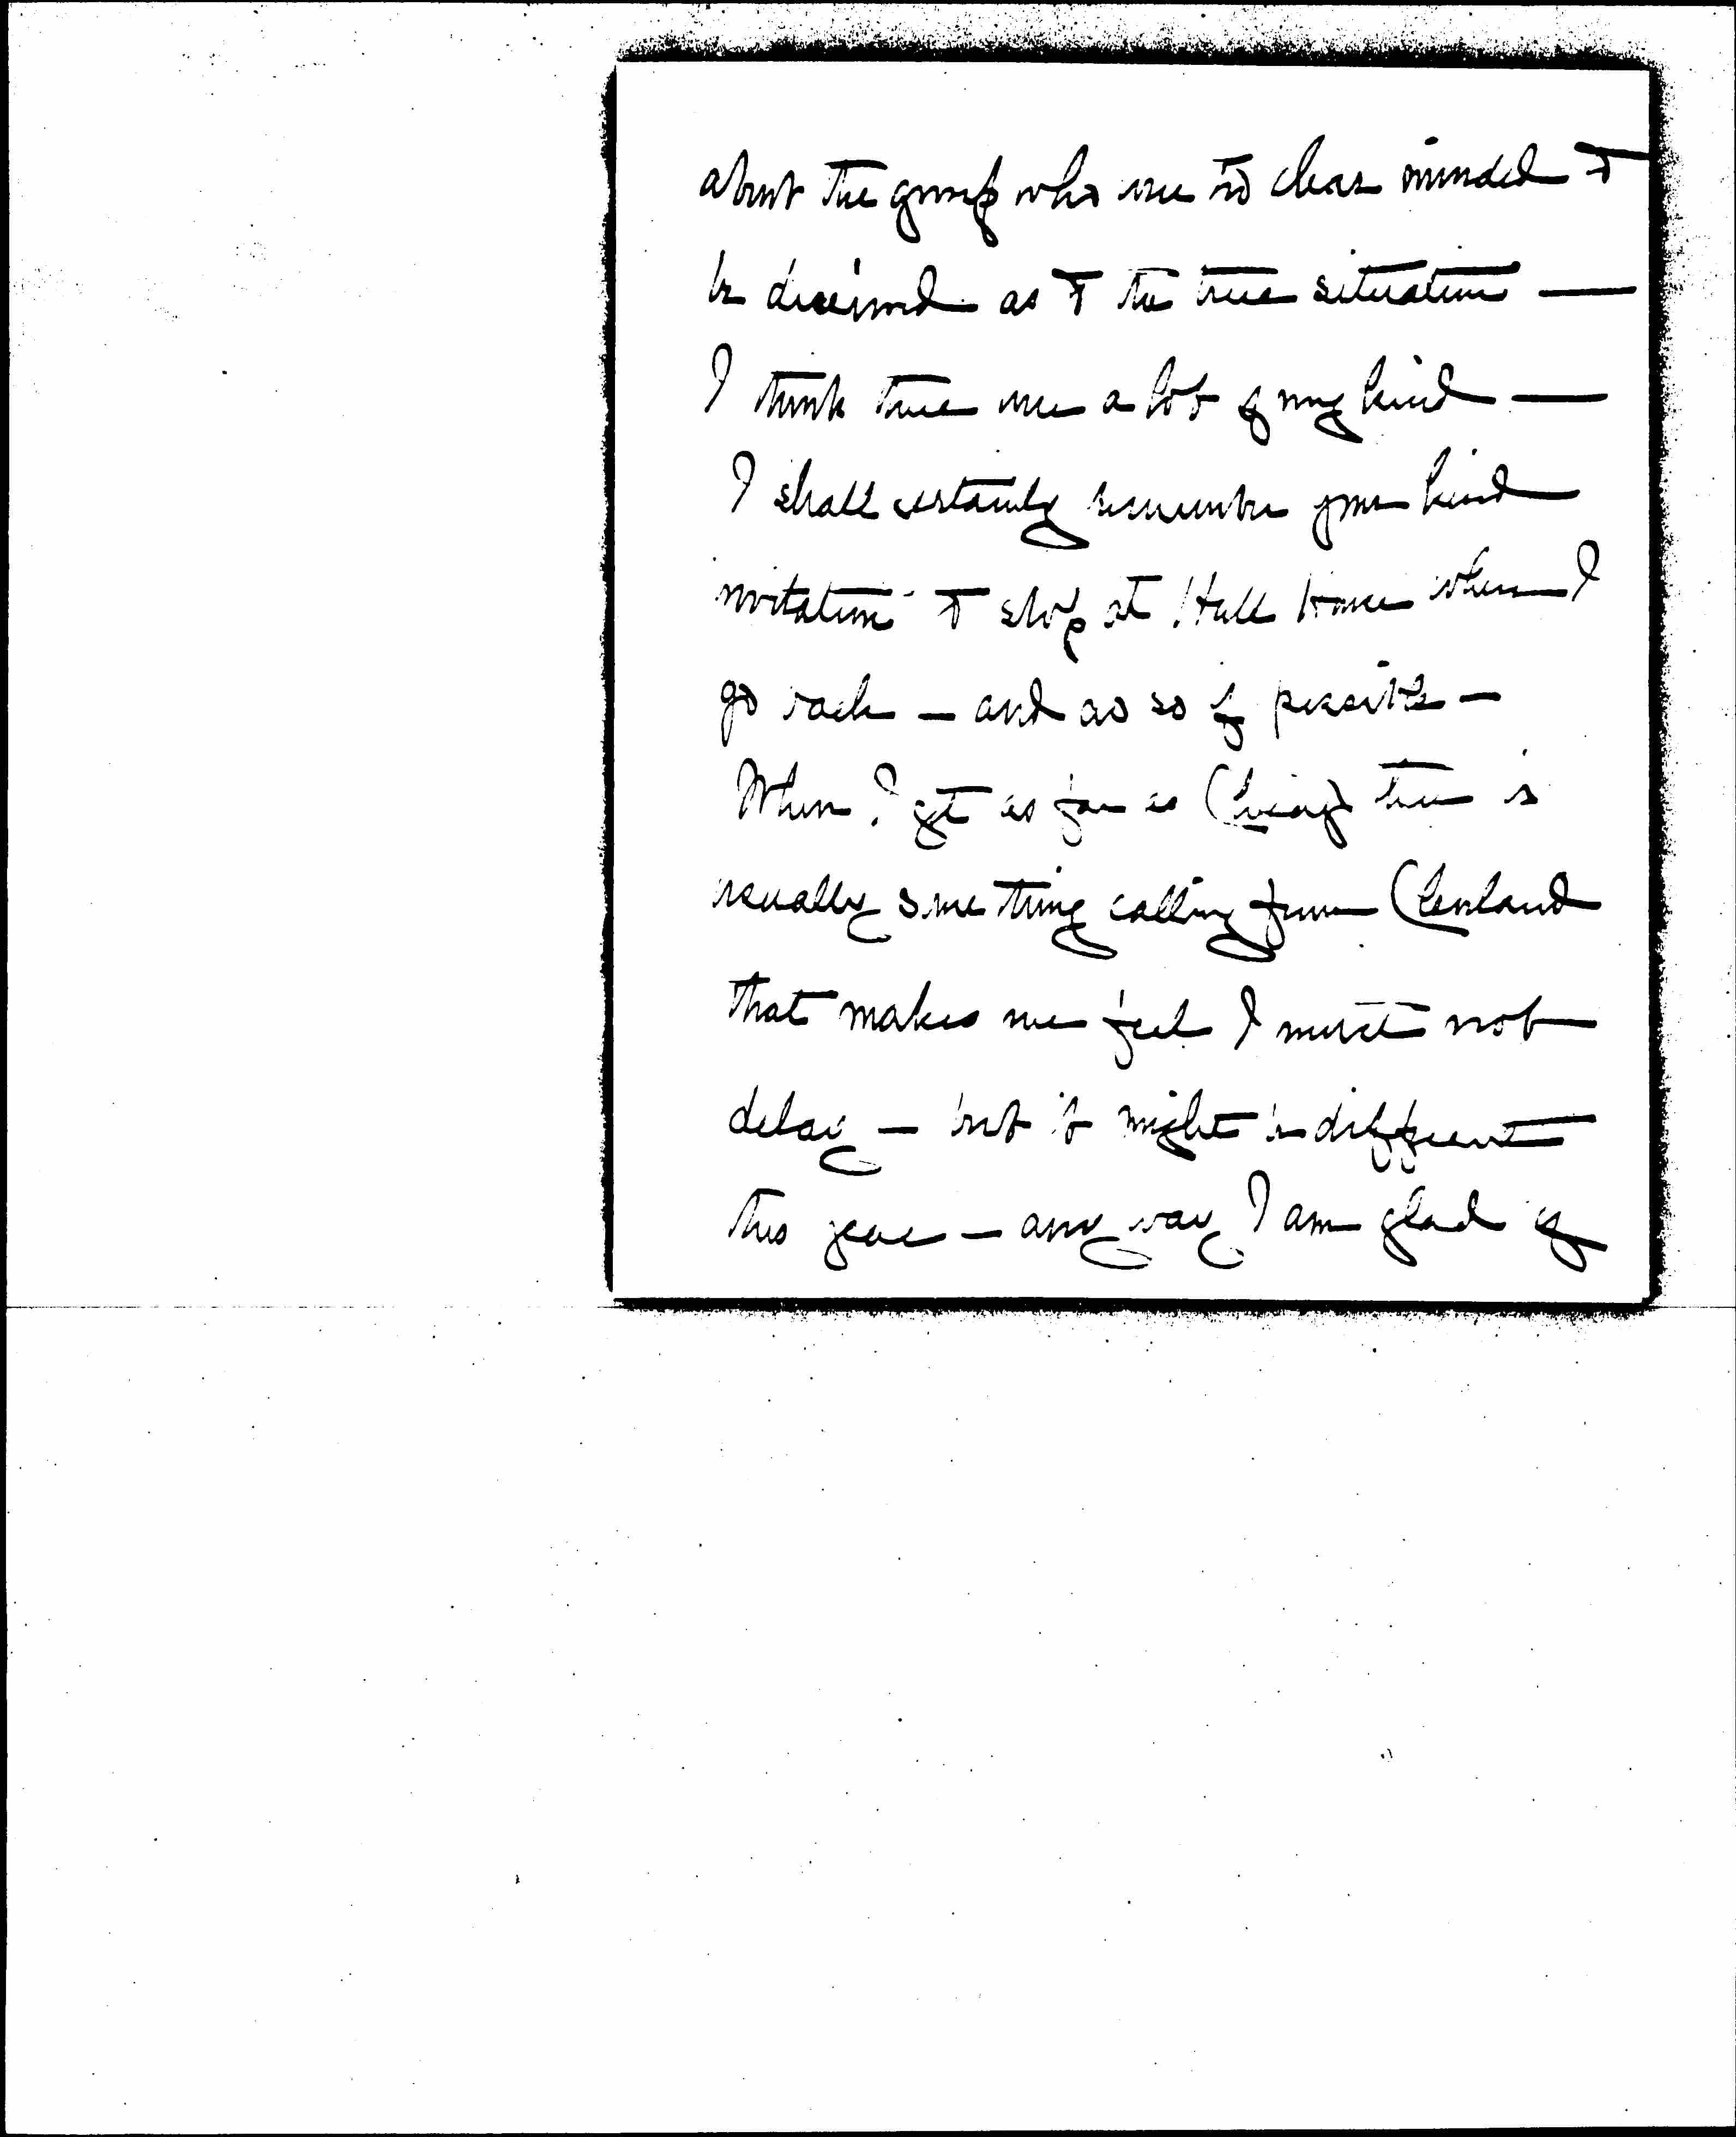 about the group who are too clear minded to
be deceived as to the true situation —
I think there are a lot of my kind —
I shall certainly remember your kind
invitation to stop at Hull House when I
go back — and do so if possible —
When I get as far as Chicago there is
usually some thing calling from Cleveland
that makes me feel I must not
delay — but it might be different
this year — any way I am glad of